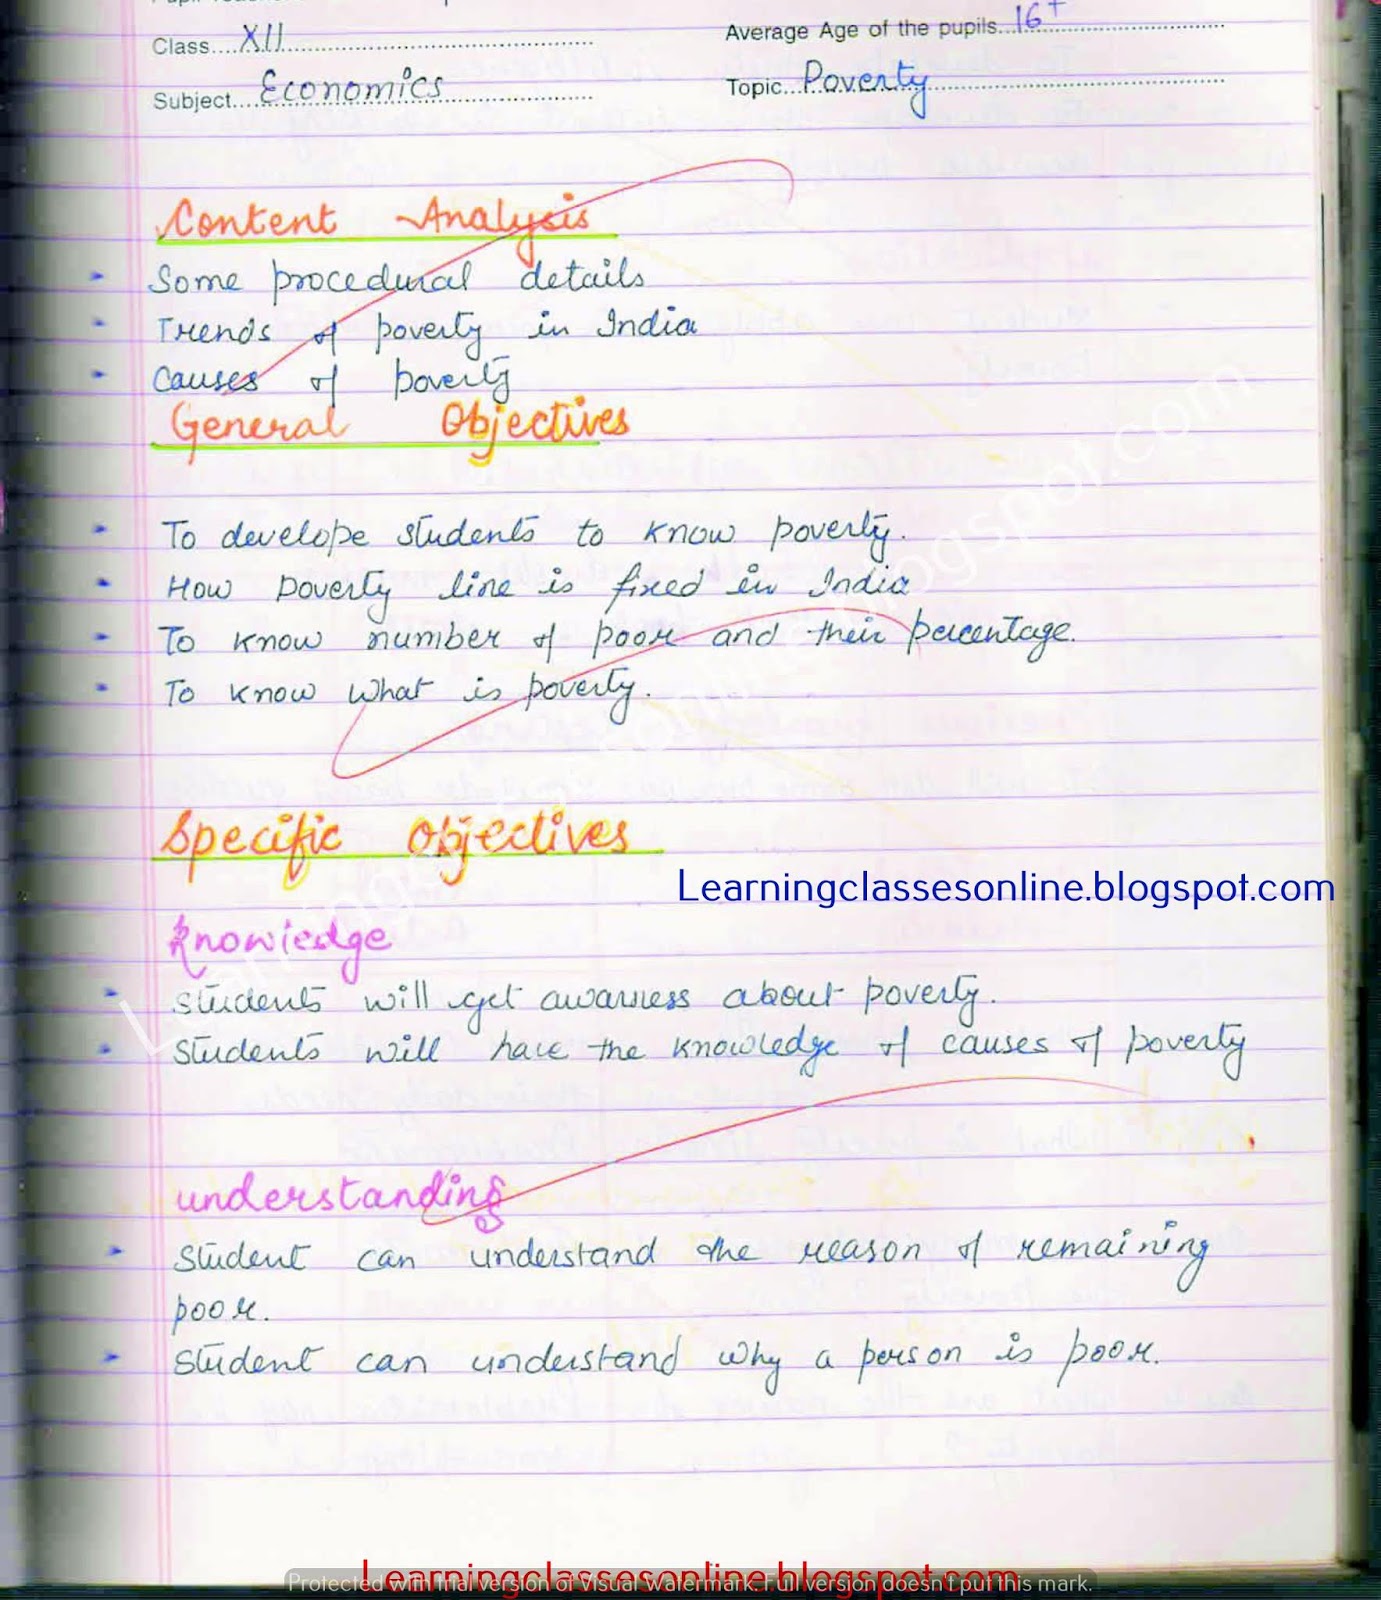 Class....XII
Average Age of the pupils...16+
Subject....Economics
Topic...Poverty
Content Analysis
Some procedural details
Trends of poverty in India
Causes of poverty
General Objectives
To develope students to know poverty.
How poverty line is fixed in India
To know number of poor and their percentage.
To know what is poverty.
Specific Objectives
Learningclassesonline.blogspot.com
Knowledge
Students will get awarness about poverty.
Students will have the knowledge of causes of poverty
understanding
Student can understand the reason of remaining
poor.
Student can understand why a person is poor.
Learningclassesonline.blogspot.com
Protected with trial version of Visual Watermark. Full version doesn't put this mark.